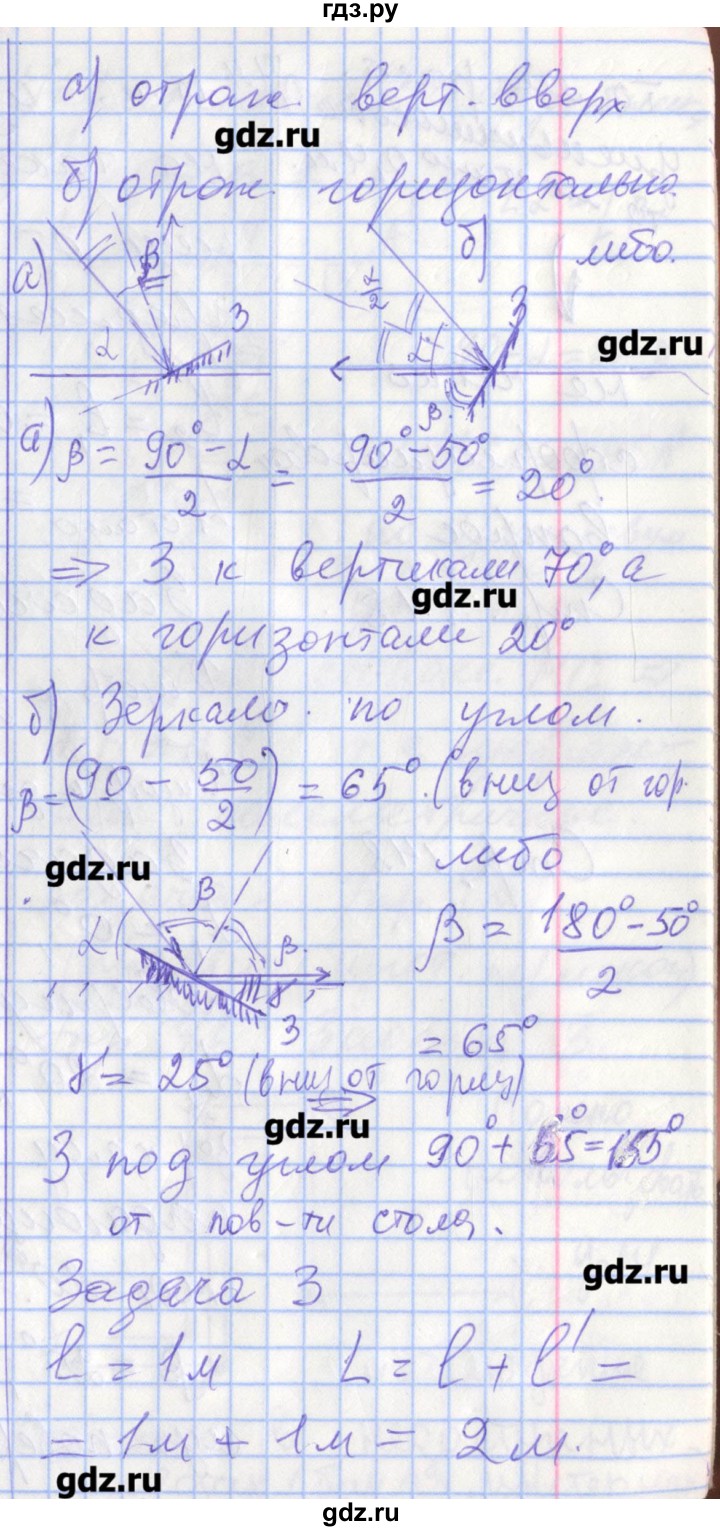 гдз.ру
а) отраж. верт. вверх
gdz.ru
б) отраж горизонтально
либо.
а) β З α
б) α/2 α З β
gdz.ru
а) β = (90° - α)/2 = (90° - 50°)/2 = 20°.
⇒ З к вертикали 70°, а
gdz.ru
к горизонтали 20°
б) Зеркало по углом.
β = (90 - 50/2) = 65°. (вниз от гор.
либо
gdz.ru
α β β γ З
β = (180° - 50°)/2
= 65°
γ = 25° (вниз от гориз)
⇒
gdz.ru
З под углом 90° + 65° = 155°
от пов-ти стола.
Задача 3
gdz.ru
l = 1м L = l + l' =
= 1м + 1м = 2м.
gdz.ru
gdz.ru